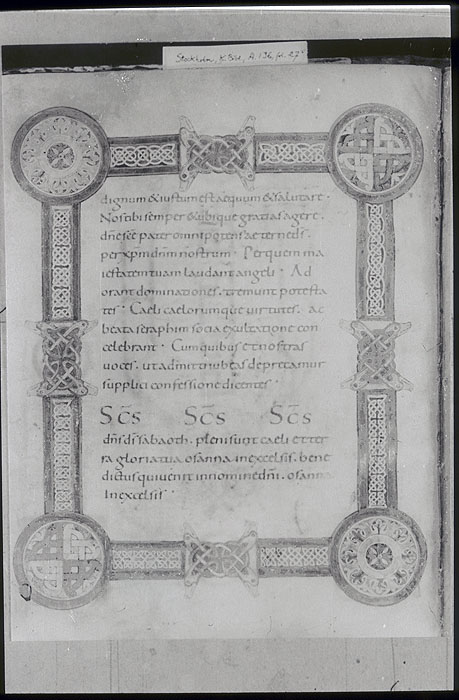 Stockholm, K. Bibl., A. 136, fol. 27v
dignum & iustum est aequum & salutare ·
Nos tibi semper & ubique gratias agere ·
dñe scē pater omnipotens aeterne ds̄ ·
per xp̄m dnm̄ nostrum · Per quem ma
iestatem tuam laudant angeli · Ad
orant dominationes · tremunt potesta
tes · Caeli caelorumque uirtutes · ac
beata seraphim socia exultatione con
celebrant · Cum quibus et nostras
uoces · ut admitti iubeas deprecamur
supplici confessione dicentes ·
Sc̄s Sc̄s Sc̄s
dñs ds̄ sabaoth · pleni sunt caeli et ter
ra gloria tua osanna in excelsis · bene
dictus qui uenit in nomine dñi · osanna
in excelsis ·